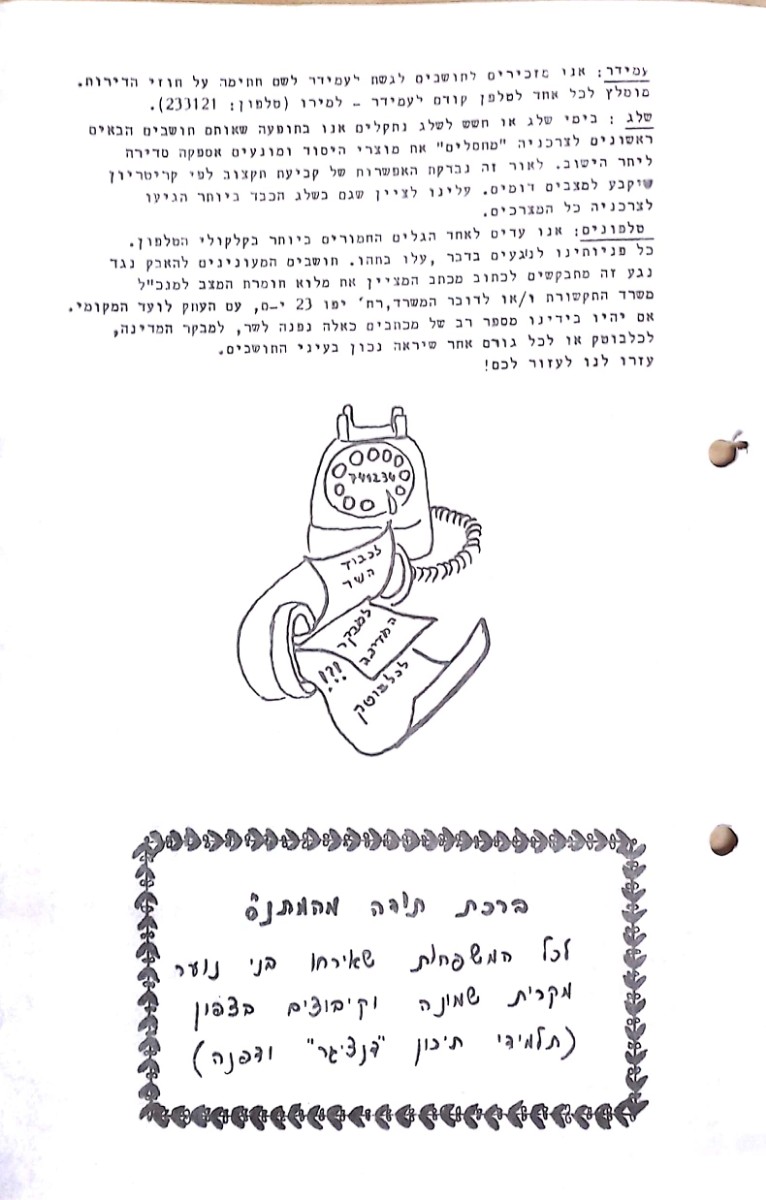 עמידר: אנו מזכירים לתושבים לגשת לעמידר לשם חתימה על חוזי הדירות.
מומלץ לכל אחד לטלפן קודם לעמידר - למירו (טלפון: 233121).
שלג : בימי שלג או חשש לשלג נתקלים אנו בתופעה שאותם תושבים הבאים
ראשונים לצרכניה "מחסלים" את מוצרי היסוד ומונעים אספקה סדירה
ליתר הישוב. לאור זה נבדקת האפשרות של קביעת תקצוב לפי קריטריון
שיקבע למצבים דומים. עלינו לציין שגם בשלג הכבד ביותר הגיעו
לצרכניה כל המצרכים.
טלפונים: אנו עדים לאחד הגלים החמורים ביותר בקלקולי הטלפון.
כל פניותינו לנוגעים בדבר ,עלו בתהו. תושבים המעונינים להאבק נגד
נגע זה מתבקשים לכתוב מכתב המציין את מלוא חומרת המצב למנכ"ל
משרד התקשורת ו/או לדובר המשרד,רח' יפו 23 י-ם, עם העתק לועד המקומי.
אם יהיו בידינו מספר רב של מכתבים כאלה נפנה לשר, למבקר המדינה,
לכלבוטק או לכל גורם אחר שיראה נכון בעיני התושבים.
עזרו לנו לעזור לכם!
741234
לכבוד
השר
למבקר
המדינה
!?!
לכלבוטק
ברכת תודה מהמתנ"ס
לכל המשפחות שאירחו בני נוער
מקרית שמונה וקיבוצים בצפון
(תלמידי תיכון "דנציגר" ודפנה)